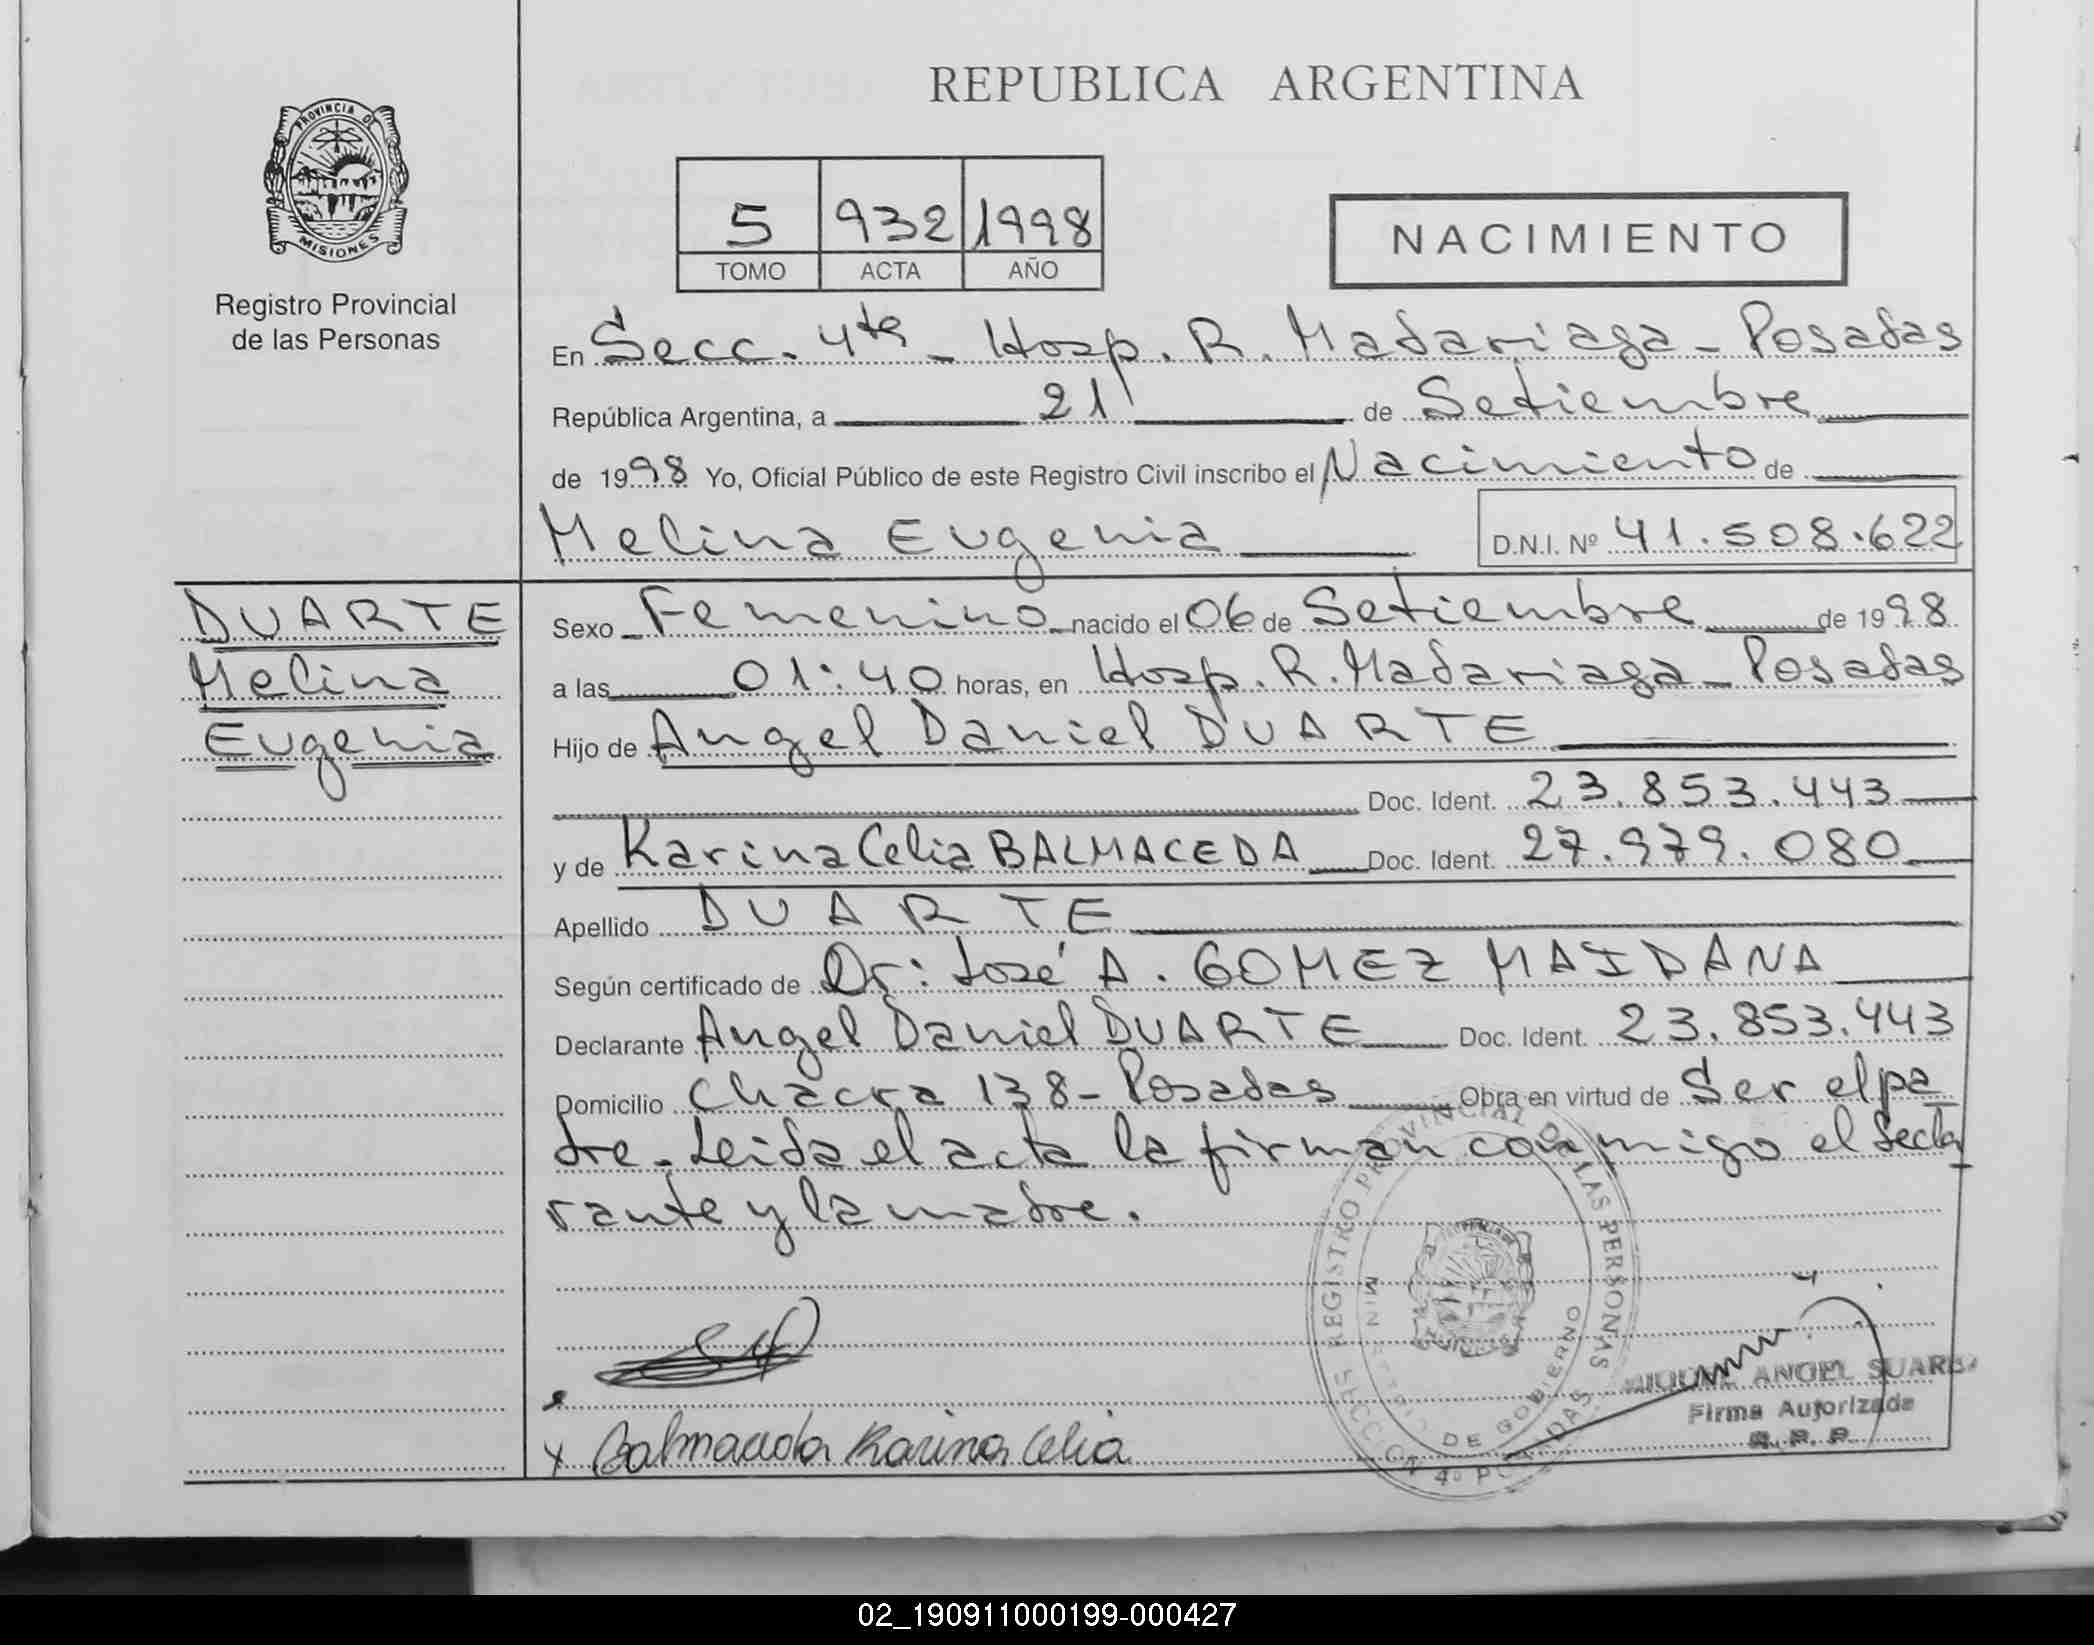 REPUBLICA ARGENTINA
PROVINCIA DE
MISIONES
Registro Provincial
de las Personas
5 932 1998
TOMO ACTA AÑO
NACIMIENTO
En Secc. 4ta - Hosp. R. Madariaga - Posadas
República Argentina, a 21 de Setiembre
de 1998 Yo, Oficial Público de este Registro Civil inscribo el Nacimiento de
Melina Eugenia D.N.I. Nº 41.508.622
DUARTE
Melina
Eugenia
Sexo Femenino nacido el 06 de Setiembre de 1998
a las 01:40 horas, en Hosp. R. Madariaga - Posadas
Hijo de Angel Daniel DUARTE
Doc. Ident. 23.853.443
y de Karina Celia BALMACEDA Doc. Ident. 27.979.080
Apellido DUARTE
Según certificado de Dr: José A. GOMEZ MAIDANA
Declarante Angel Daniel DUARTE Doc. Ident. 23.853.443
Domicilio Chacra 138 - Posadas Obra en virtud de Ser el pa
dre - Leida el acta la firman conmigo el decla
rante y la madre.
REGISTRO PROVINCIAL DE LAS PERSONAS
MINISTERIO DE GOBIERNO
SECCION 4º POSADAS
MIGUEL ANGEL SUAREZ
Firma Autorizada
R. P. P.
x Balmaceda Karina Celia
02_190911000199-000427